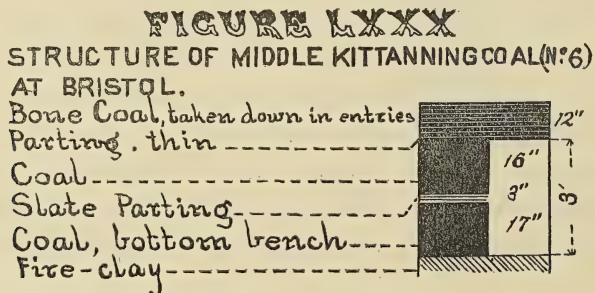 FIGURE LXXX
STRUCTURE OF MIDDLE KITTANNING COAL (No. 6)
AT BRISTOL.
Bone Coal, taken down in entries 12"
Parting, thin
16"
Coal
3" 3'
Slate Parting
17"
Coal, bottom bench
Fire-clay